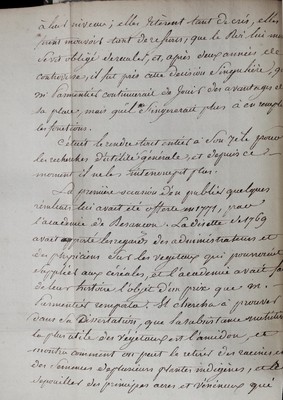 à leur niveau ; elles jetèrent tant de cris, elles
firent mouvoir tant de ressorts, que le Roi lui même
se vit obligé de reculer, et, après deux années de
controverse, il fut pris cette décision singulière, que
M. Parmentier continuerait de jouir des avantages de
sa place, mais qu'il n'en exercerait plus
les fonctions.
C'était le rendre tout entier à son zèle pour
les recherches d'utilité générale, et depuis ce
moment il ne les interrompit plus.
La première occasion d'en publier quelques
résultats lui avait été offerte en 1771, par
l'académie de Besançon. La disette de 1769
avait appelé les regards des administrateurs et
des physiciens sur les végétaux qui pourraient
suppléer aux céréales, et l'académie avait fait
de leur histoire l'objet d'un prix que M.
Parmentier remporta. Il chercha à prouver
dans sa Dissertation, que la substance nutritive
la plus utile des végétaux est l'amidon, et
montra comment on peut le retirer des racines et
des semences de plusieurs plantes indigènes, et le
dépouiller des principes acres et vénéneux qui